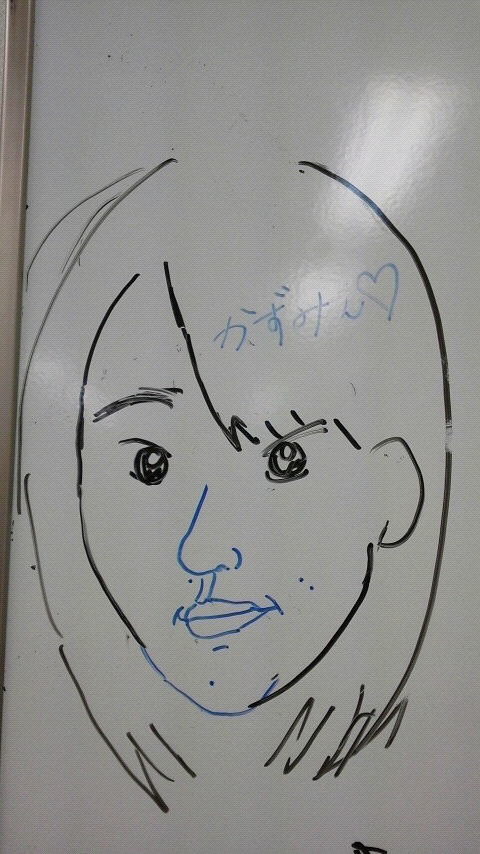 かずみん♡